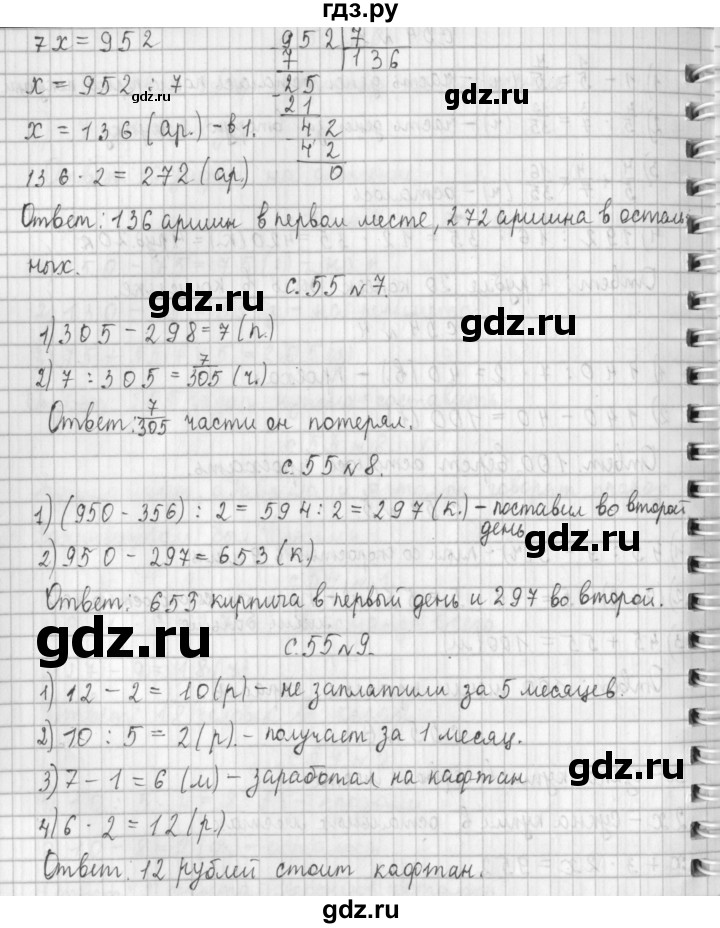 гдз.ру
7x = 952
952 | 7
7 136
x = 952 : 7
- 25
21
x = 136 (ар.) - в 1.
42
- 42
0
136 · 2 = 272 (ар)
Ответ: 136 аршин в первом месте, 272 аршина в осталь
ных.
с. 55 № 7.
1) 305 - 298 = 7 (п.)
2) 7 : 305 = 7/305 (ч.)
Ответ: 7/305 части он потерял.
с. 55 № 8.
1) (950 - 356) : 2 = 594 : 2 = 297 (к.) - поставил во второй
день
2) 950 - 297 = 653 (к)
Ответ: 653 кирпича в первый день и 297 во второй.
с. 55 № 9.
1) 12 - 2 = 10 (р) - не заплатили за 5 месяцев.
2) 10 : 5 = 2 (р). - получает за 1 месяц.
3) 7 - 1 = 6 (м) - заработал на кафтан
4) 6 · 2 = 12 (р.)
Ответ: 12 рублей стоит кафтан.
gdz.ru
gdz.ru
gdz.ru
gdz.ru
gdz.ru
gdz.ru
gdz.ru
gdz.ru
gdz.ru
gdz.ru
gdz.ru